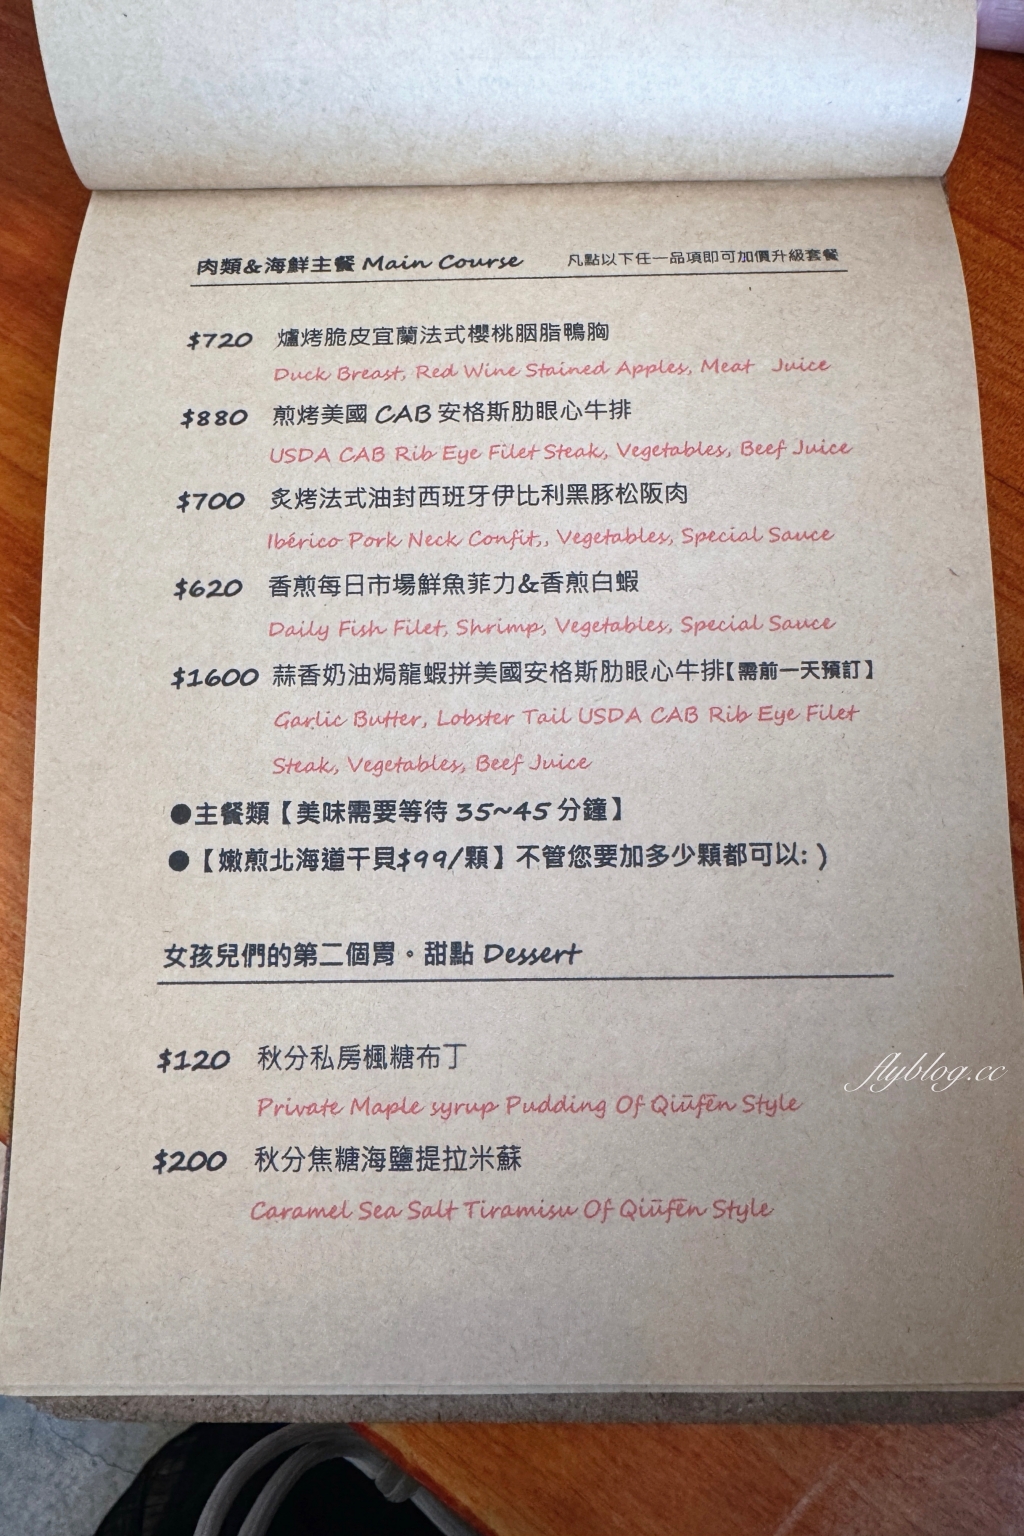 肉類&海鮮主餐 Main Course 凡點以下任一品項即可加價升級套餐
$720 爐烤脆皮宜蘭法式櫻桃胭脂鴨胸
Duck Breast, Red Wine Stained Apples, Meat Juice
$880 煎烤美國 CAB 安格斯肋眼心牛排
USDA CAB Rib Eye Filet Steak, Vegetables, Beef Juice
$700 炙烤法式油封西班牙伊比利黑豚松阪肉
Ibérico Pork Neck Confit,, Vegetables, Special Sauce
$620 香煎每日市場鮮魚菲力&香煎白蝦
Daily Fish Filet, Shrimp, Vegetables, Special Sauce
$1600 蒜香奶油焗龍蝦拼美國安格斯肋眼心牛排【需前一天預訂】
Garlic Butter, Lobster Tail USDA CAB Rib Eye Filet
Steak, Vegetables, Beef Juice
●主餐類【美味需要等待 35~45 分鐘】
●【嫩煎北海道干貝$99/顆】不管您要加多少顆都可以: )
女孩兒們的第二個胃。甜點 Dessert
$120 秋分私房楓糖布丁
Private Maple syrup Pudding Of Qiūfēn Style
$200 秋分焦糖海鹽提拉米蘇
Caramel Sea Salt Tiramisu Of Qiūfēn Style
flyblog.cc